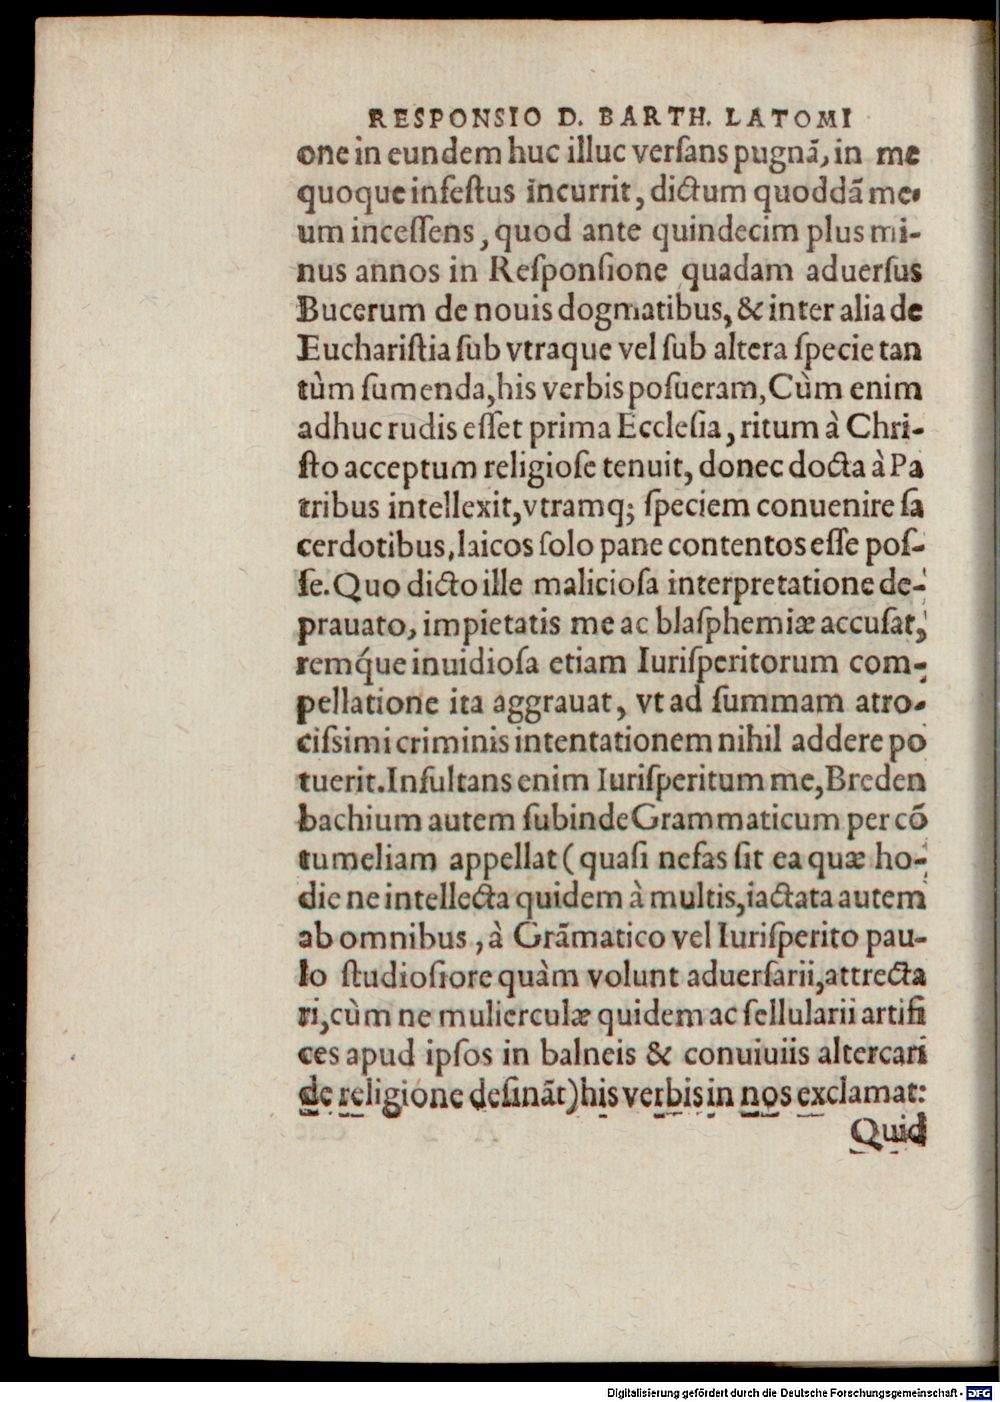 RESPONSIO D. BARTH. LATOMI
one in eundem huc illuc verſans pugnã, in me
quoque infeſtus incurrit, dictum quoddã me-
um inceſſens, quod ante quindecim plus mi-
nus annos in Reſponſione quadam aduerſus
Bucerum de nouis dogmatibus, & inter alia de
Euchariſtia ſub vtraque vel ſub altera ſpecie tan
tùm ſumenda, his verbis poſueram, Cùm enim
adhuc rudis eſſet prima Eccleſia, ritum à Chri-
ſto acceptum religioſe tenuit, donec docta à Pa
tribus intellexit, vtramq; ſpeciem conuenire ſa
cerdotibus, laicos ſolo pane contentos eſſe poſ-
ſe. Quo dicto ille malicioſa interpretatione de-
prauato, impietatis me ac blaſphemiæ accuſat,
remq́ue inuidioſa etiam Iuriſperitorum com-
pellatione ita aggrauat, vt ad ſummam atro-
ciſsimi criminis intentationem nihil addere po
tuerit. Inſultans enim Iuriſperitum me, Breden
bachium autem ſubinde Grammaticum per cõ
tumeliam appellat (quaſi nefas ſit ea quæ ho-
die ne intellecta quidem à multis, iactata autem
ab omnibus, à Grãmatico vel Iuriſperito pau-
lo ſtudioſiore quàm volunt aduerſarii, attrecta
ri, cùm ne mulierculæ quidem ac ſellularii artifi
ces apud ipſos in balneis & conuiuiis altercari
de religione deſinãt) his verbis in nos exclamat:
Quid
Digitalisierung gefördert durch die Deutsche Forschungsgemeinschaft - DFG